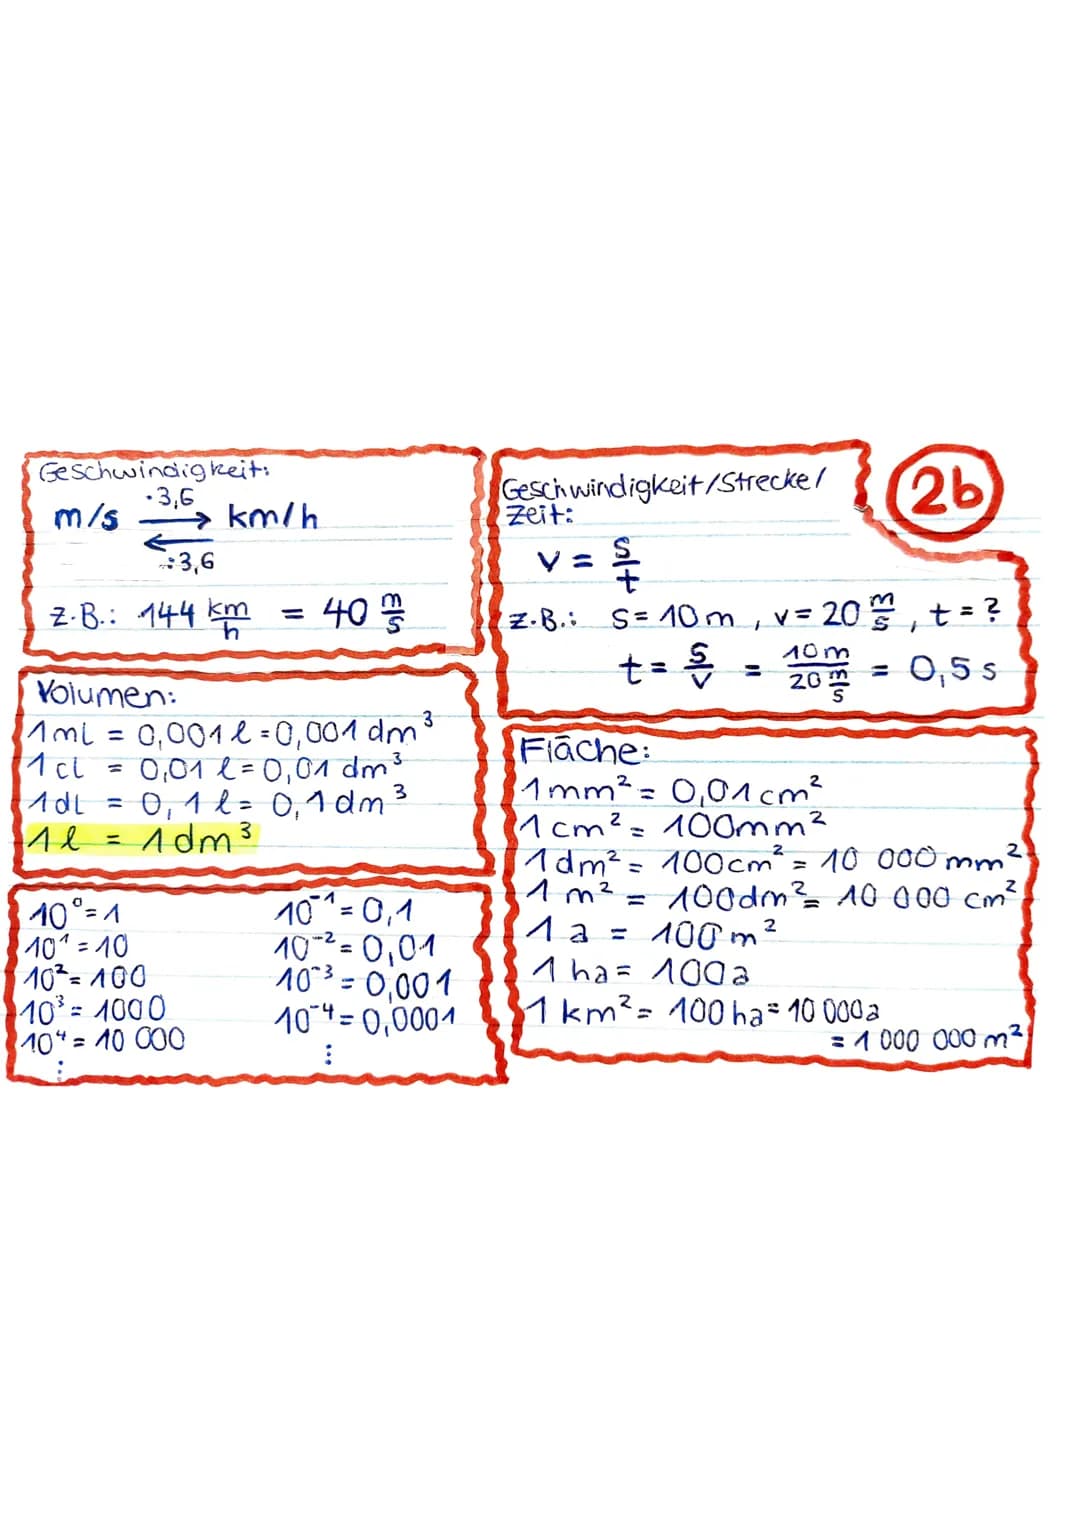 Geschwindigkeit:
·3,6
m/s ⇄ km/h
:3,6
z.B.: 144 km/h = 40 m/s
Geschwindigkeit/Strecke/
Zeit:
v = s/t
z.B.: s = 10 m, v = 20 m/s, t = ?
t = s/v = 10m/20 m/s = 0,5 s
2b
Volumen:
1 ml = 0,001 l = 0,001 dm³
1 cl = 0,01 l = 0,01 dm³
1 dl = 0,1 l = 0,1 dm³
1 l = 1 dm³
Fläche:
1 mm² = 0,01 cm²
1 cm² = 100 mm²
1 dm² = 100 cm² = 10 000 mm²
1 m² = 100 dm² = 10 000 cm²
1 a = 100 m²
1 ha = 100 a
1 km² = 100 ha = 10 000 a
= 1 000 000 m²
10⁰ = 1
10¹ = 10
10² = 100
10³ = 1000
10⁴ = 10 000
⋮
10⁻¹ = 0,1
10⁻² = 0,01
10⁻³ = 0,001
10⁻⁴ = 0,0001
⋮